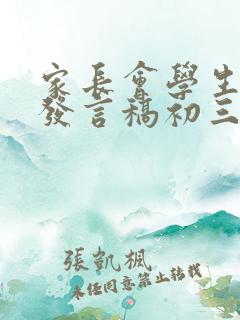 家長會學生
發言稿初三
張凱楓
未经同意禁止转载